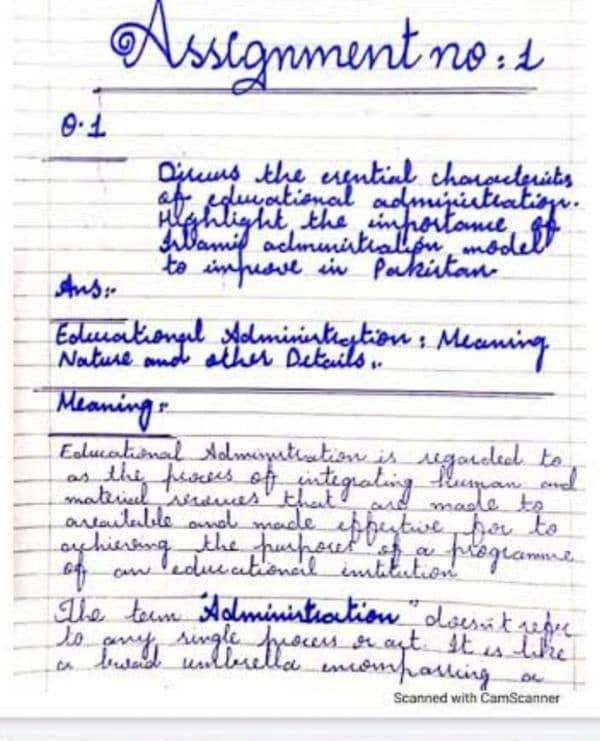 Assignment no: 1
Q.1
Discuss the essential characterists
of educational administration.
Highlight the importance of
Islamic administration model
to improve in Pakistan
Ans:-
Educational Administration: Meaning
Nature and other Details:-
Meaning:-
Educational Administration is regarded to
as the process of integrating human and
material resources that are made to
available and made effective for to
achieving the purposes of a programme
of an educational institution
The term "Administration" doesn't refer
to any single process or act. It is like
a broad umbrella encompassing a
Scanned with CamScanner